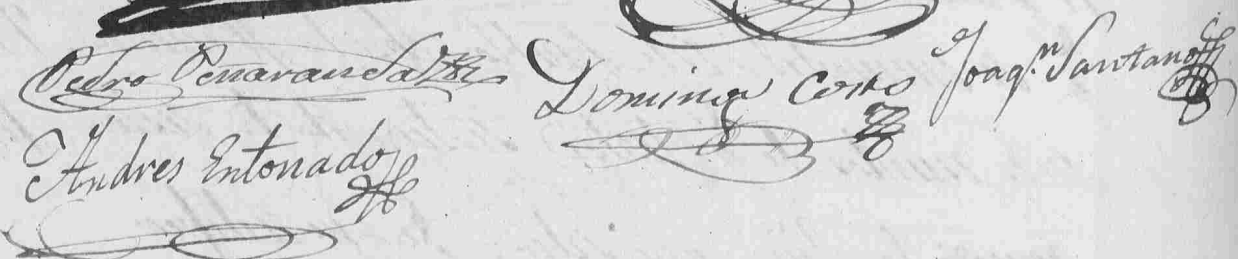 Pedro Peñaranda
Domingo Corto
Joaqn. Santano
Andres Entonado